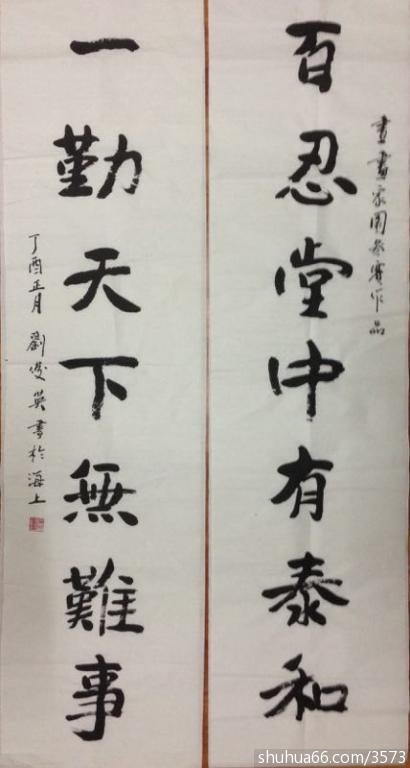 百忍堂中有泰和
書畫家園參賽作品
一勤天下無難事
丁酉正月劉俊英書於海上
shuhua66.com/3573